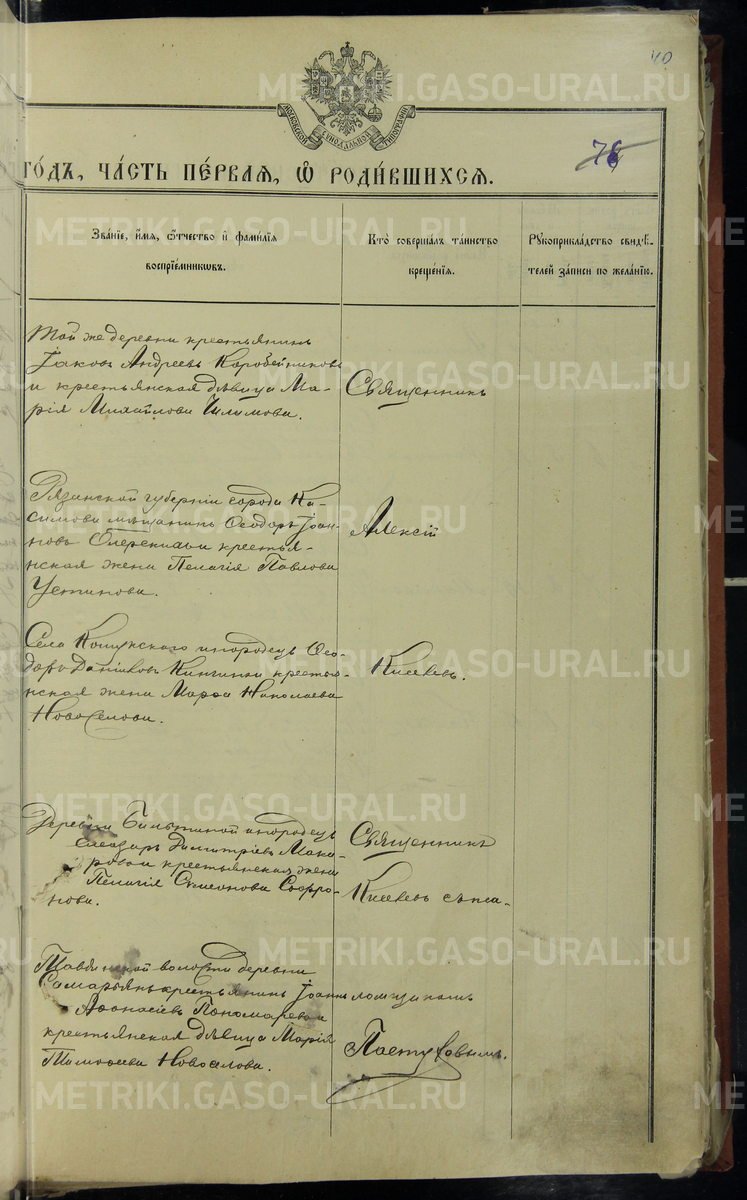 40
МОСКОВСКОЙ СѴНОДАЛЬНОЙ ТИПОГРАФІИ
76
ГО́ДЪ, ЧА́СТЬ ПЕ́РВАЯ, Ѡ҆ РОДИ́ВШИХСЯ.
Зва́ніе, и҆́мя, ѻ҆́тчество и҆ фами́лія
воспріе́мниковъ.
Кто̀ соверша́лъ та́инство
креще́нія.
Рꙋкоприкла́дство свидѣ́-
телей за́писи по жела́нію.
Той же деревни крестьянинъ
Іаковъ Андреевъ Коробейниковъ
и крестьянская дѣвица Ма-
рія Михайлова Чилимова.
Священникъ
Рязанской губерніи города Ка-
симова мѣщанинъ Ѳеодоръ Іоан-
новъ и крестья-
нская жена Пелагія Павлова
Устинова.
Алексій
Села Кошукскаго инородецъ Ѳео-
доръ Даніиловъ крестья-
нская жена Марѳа Николаева
Новоселова.
Киселевъ.
Деревни инородецъ
Елеазаръ Димитріевъ Мака-
ровъ и крестьянская жена
Пелагія Симеонова Софро-
нова.
Священникъ
Киселевъ съ пса-
Тавдинской волости деревни
крестьянинъ Іоаннъ
Аѳонасіевъ Пономаревъ и
крестьянская дѣвица Марія
Тимоѳеева Новоселова.
ломщикомъ
Пастуховымъ.
METRIKI.GASO-URAL.RU